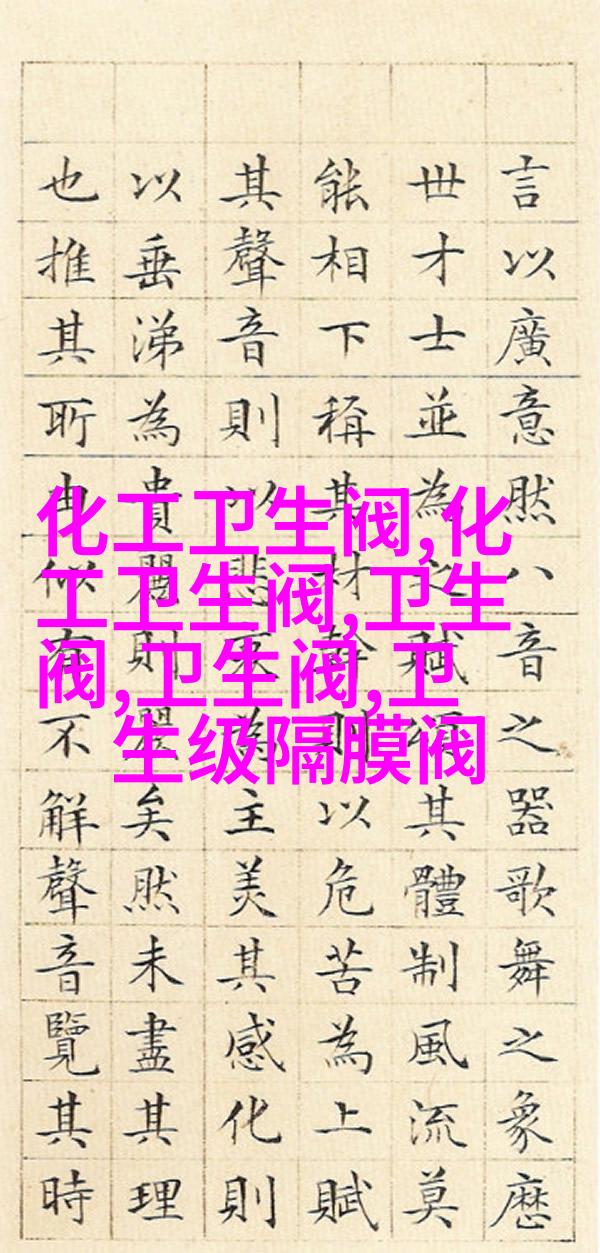 化工卫生阀,化
工卫生阀,卫生
阀,卫生阀,卫
生级隔膜阀
言以廣意然八音之器歌舞之象歷
世才士並為之賦頌其體制風流莫
能相下稱其材幹則以危苦為上賦
其聲音則以悲哀為主美其感化則
以垂涕為貴麗則麗矣然未盡其理
也推其所由似有不解聲音覽其時